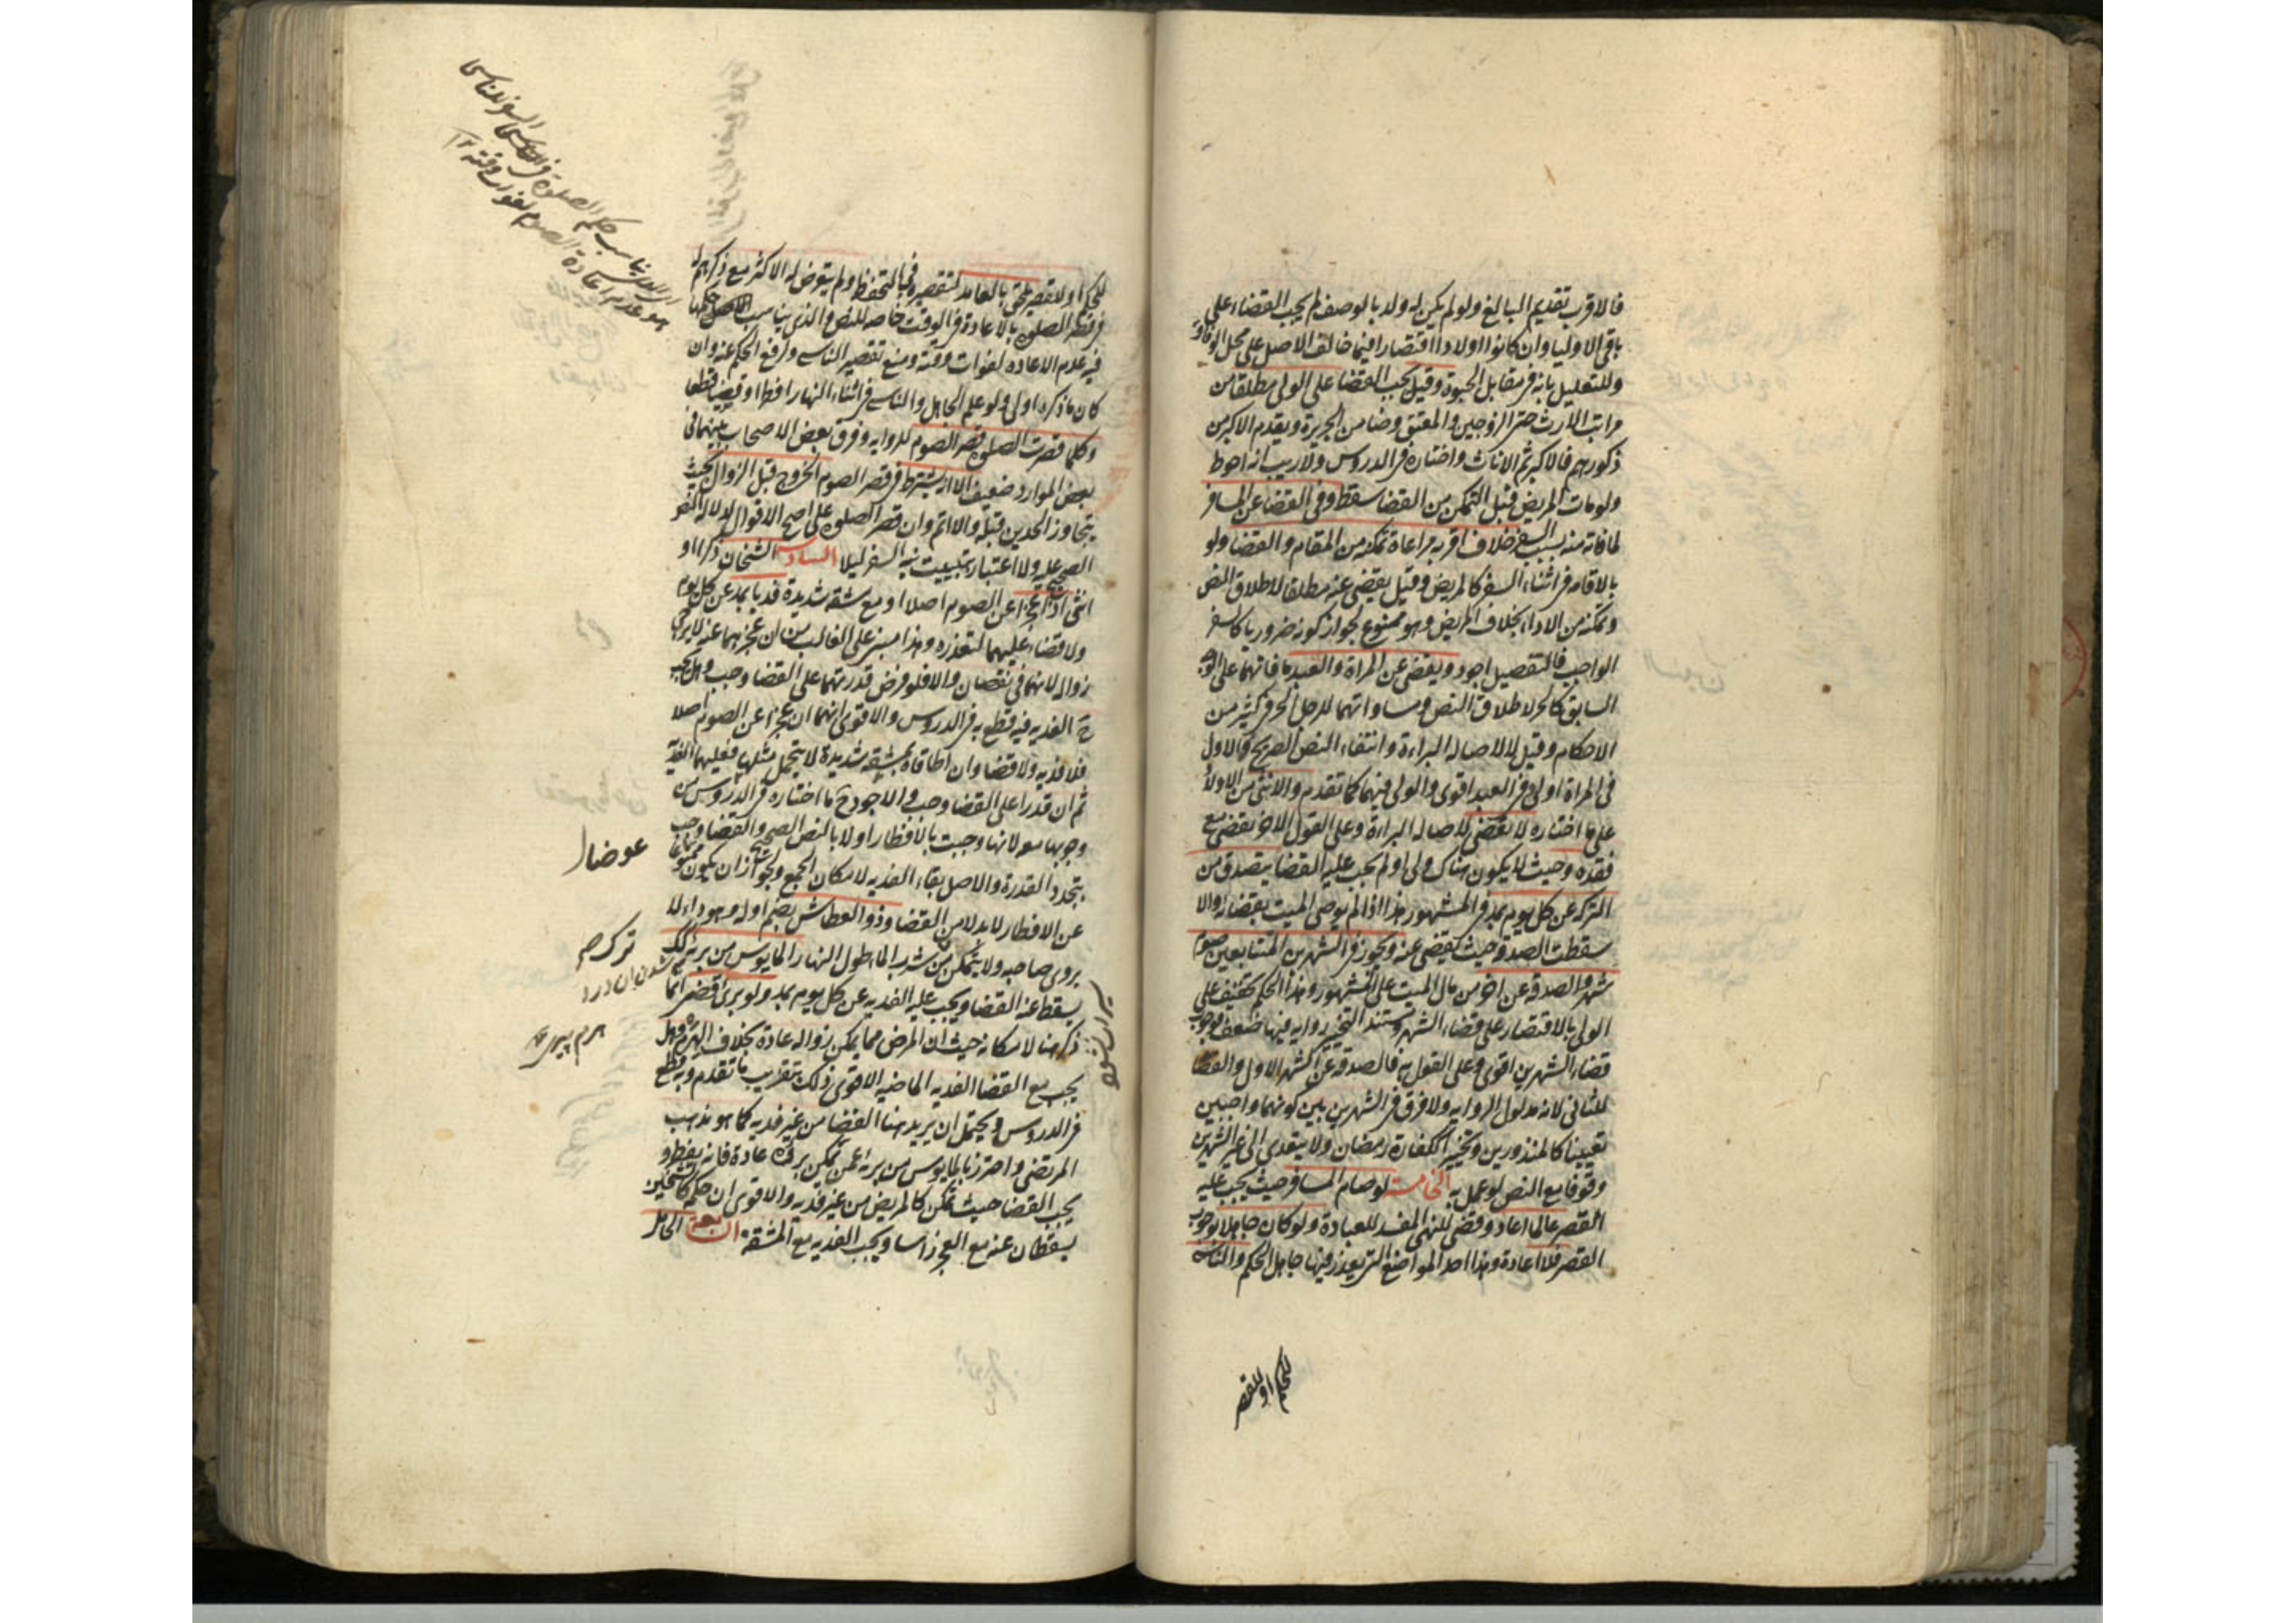 فالاقرب تقديم البالغ ولو لم يكن له ولد بالوصف لم يجب القضاء على
باقى الاوليا وان كانوا اولادا اقتصارا فيما خالف الاصل على محل الوفاق
وللتعليل بانه فى مقابل الحبوة وقيل يجب القضا على الولى مطلقا من
مراتب الارث حتى الزوجين والمعتق وضامن الجريرة ويقدم الاكبر من
ذكورهم فالاكبر ثم الاناث واختاره فى الدروس ولا ريب انه احوط
ولو مات المريض قبل التمكن من القضا سقط وفى القضا عن المسافر
لما فاته منه بسبب السفر خلاف اقربه مراعاة تمكنه من المقام والقضا ولو
بالاقامه فى اثناء السفر كالمريض وقيل يقضى عنه مطلقا لاطلاق النص
وتمكنه من الاداء بخلاف المريض وهو ممنوع لجواز كونه ضروريا كالسفر
الواجب فالتفصيل اجود ويقضى عن المراة والعبد ما فاتهما على الوجه
السابق كالحر لاطلاق النص ومساواتهما للرجل الحر فى كثير من
الاحكام وقيل لا لاصاله البراءة وانتفاء النص الصريح والاول
فى المراة اولى وفى العبد اقوى والولى فيهما كما تقدم والانثى من الاولاد
على ما اختاره لا تقضى لاصاله البراءة وعلى القول الاخر تقضى مع
فقده وحيث لا يكون هناك ولى او لم يجب عليه القضا يتصدق من
التركه عن كل يوم بمد فى المشهور هذا اذا لم يوصى الميت بقضائه والا
سقطت الصدقه حيث يقضى عنه ويجوز فى الشهرين المتتابعين صوم
شهر والصدقه عن اخر من مال الميت على المشهور وهذا الحكم تخفيف على
الولى بالاقتصار على قضاء الشهر ومستند التخيير روايه فيها ضعف فوجوب
قضاء الشهرين اقوى وعلى القول به فالصدقه عن الشهر الاول والقضا
للثانى لانه مدلول الروايه ولا فرق فى الشهرين بين كونهما واجبين
تعيينا كالمنذورين وتخييرا ككفارة رمضان ولا يتعدى الى غير الشهرين
وقوفا مع النص لو عمل به الخامسة لو صام المسافر حيث يجب عليه
القصر عالما اعاد وقضى للنهى المفسد للعبادة ولو كان جاهلا بوجوب
القصر فلا اعادة وهذا احد المواضع التى يعذر فيها جاهل الحكم والناسى
للحكم او للقصر
للحكم او للقصر يلحق بالعامد لتقصيره فى التحفظ ولم يتعرض له الاكثر مع ذكرهم له
فى قصر الصلوة بالاعادة فى الوقت خاصه للنص والذى يناسب حكمها
فيه عدم الاعاده لفوات وقته ومنع تقصير الناسى ولرفع الحكم عنه وان
كان ما ذكره اولى ولو علم الجاهل والناسى فى اثناء النهار افطرا وقضيا قطعا
وكلما قصرت الصلوة قصر الصوم للروايه وفرق بعض الاصحاب بينهما فى
بعض الموارد ضعيف الا انه يشترط فى قصر الصوم الخروج قبل الزوال بحيث
يتجاوز الحدين قبله والا اتم وان قصر الصلوة على اصح الاقوال لدلاله النص
الصحيح عليه ولا اعتبار بتبييت نيه السفر ليلا السادسة الشيخان ذكرا او
انثى اذا عجزا عن الصوم اصلا او مع مشقه شديدة فديا بمد عن كل يوم
ولا قضاء عليهما لتعذره وهذا مبنى على الغالب من ان عجزهما عنه لا يرجى
زواله لانهما فى نقصان والا فلو فرض قدرتهما على القضا وجب وهل يجب
ح الفديه فيه قطع به فى الدروس والاقوى انهما ان عجزا عن الصوم اصلا
فلا فديه ولا قضا وان اطاقاه بمشقه شديدة لا يتحمل مثلها فعليهما الفديه
ثم ان قدرا على القضا وجب والاجود ح ما اختاره فى الدروس من
وجوبها معه لانها وجبت بالافطار اولا بالنص الصحيح والقضا وجب
بتجدد القدرة والاصل بقاء الفديه لامكان الجمع ولجواز ان يكون عوضا
عن الافطار لا بدلا من القضا وذو العطاش بضم اوله وهو داء لا
يروى صاحبه ولا يتمكن من شرب الماء طول النهار المايوس من برئه كذلك
يسقط عنه القضا ويجب عليه الفديه عن كل يوم بمد ولو برئ قضى انما
ذكر هنا لامكانه حيث ان المرض مما يمكن زواله عادة بخلاف الهرم وهل
يجب مع القضا الفديه الماضيه الاقوى ذلك بتقريب ما تقدم وبه قطع
فى الدروس ويحتمل ان يريد هنا القضا من غير فديه كما هو مذهب
المرتضى واحترز بالمايوس من برئه عمن يمكن برؤه عادة فانه يفطر و
يجب القضا حيث يمكن كالمريض من غير فديه والاقوى ان حكمه كالشيخين
يسقطان عنه مع العجز راسا ويجب الفديه مع المشقه السابعة الحامل
عوضا